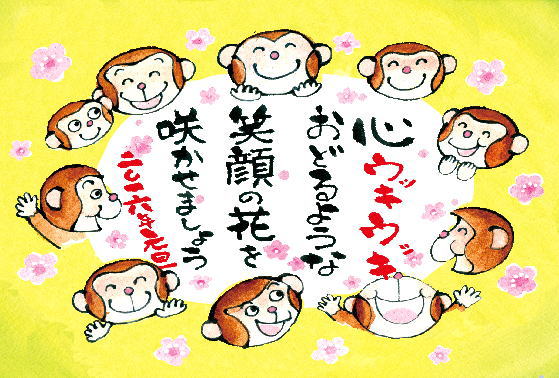 心ウッキウッキ
おどるような
笑顔の花を
咲かせましょう
二〇一六年元旦